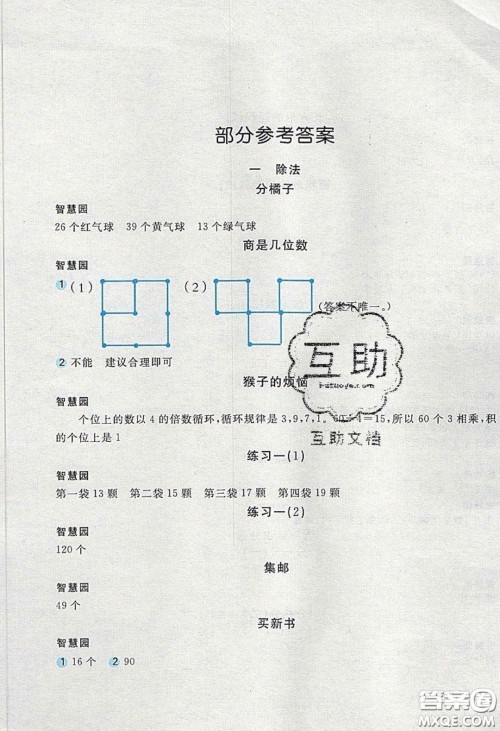 部分参考答案
一 除法
分橘子
智慧园
26个红气球 39个黄气球 13个绿气球
商是几位数
智慧园
1 (1) (2) (答案不唯一。)
2 不能 建议合理即可
猴子的烦恼
智慧园
个位上的数以4的倍数循环,循环规律是3,9,7,1。60÷4=15,所以60个3相乘,积
的个位上是1
练习一(1)
智慧园
第一袋13颗 第二袋15颗 第三袋17颗 第四袋19颗
练习一(2)
智慧园
120个
集邮
智慧园
49个
买新书
智慧园
1 16个 2 90
互助
互助文档
答案圈
MXQE.COM